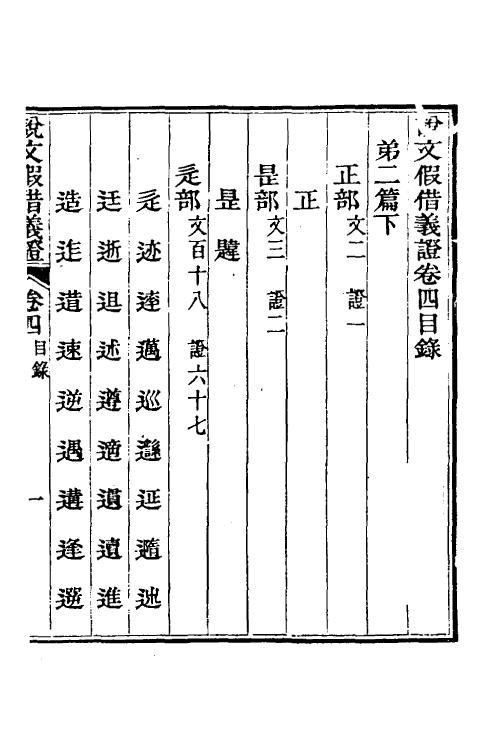 說文假借義證卷四目錄
弟二篇下
正部文二 證一
正
昰部文三 證二
昰 韙
辵部文百十八 證六十七
辵 迹 達 邁 巡 邎 延 隨 迆
迋 逝 𨑢 述 遵 適 遺 遺 進
造 迮 遁 速 逆 遇 遘 逢 選
說文假借義證 卷四 目錄 一